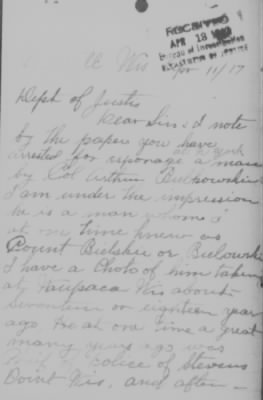 RECEIVED
APR 18
Bureau of Investigation
Wis Apr 11/17
Dept of Justis
Dear Sir:- I note
by the papers you have
arrested for espionage a man
by Col Arthur
I am under the impression
he is a man whome I
at one time knew as
Count Bielskie or
I have a Photo of him taken
at Waupaca Wis about
Seventeen or eighteen year
ago. He at one time a great
many years ago was
police of Stevens
Point Wis, and after -